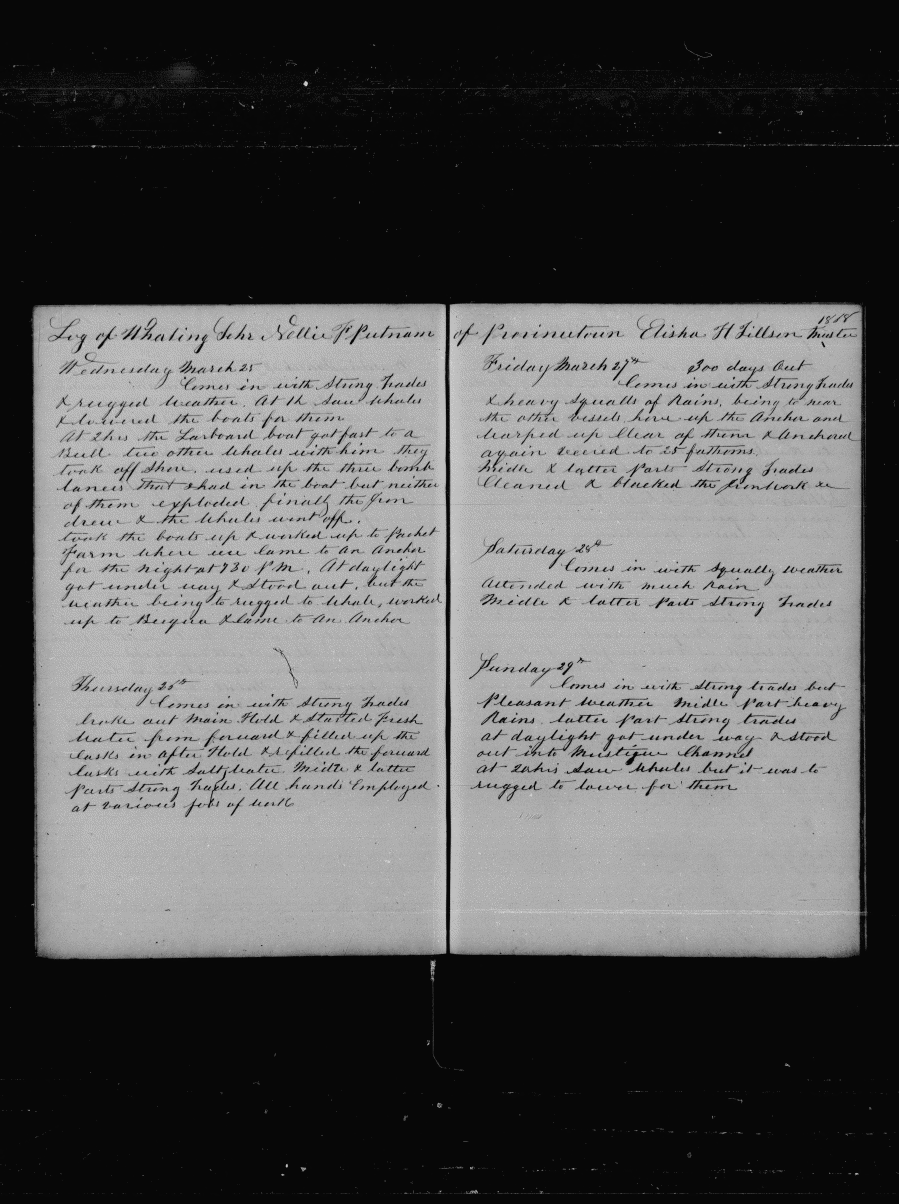 Log of Whaling Schr Nellie F Putnam
Wednesday March 25
Comes in with Strong Trades
& rugged weather. At 1h saw whales
& lowered the boats for them
At 2hrs the Larboard boat got fast to a
Bull two other whales with him they
took off shore. used up the three bomb
lances that & had in the boat but neither
of them exploded. finally the Iron
drew & the whales went off.
took the boats up & worked up to Pachet
Farm where we Came to An Anchor
for the night at 7.30 P.M. At daylight
got under way & stood out, but the
weather being to rugged to whale, worked
up to Bequia & Came to An Anchor
Thursday 26th
Comes in with strong Trades
broke out Main Hold & Started Fresh
Water from forward & filled up the
Casks in after Hold & refilled the forward
Casks with Salt Water Middle & latter
Parts Strong Trades. All hands Employed
at various jobs of work
of Provincetown Elisha H Tillson Master
Friday March 27th 300 days Out
Comes in with Strong Trades
& heavy Squalls of Rains. being to near
the other vessels. hove up the Anchor and
warped up Clear of them & Anchored
again veered to 25 fathoms.
Middle & latter Parts Strong Trades
Cleaned & blacked the Iron Work &c
Saturday 28th
Comes in with Squally weather
Attended with much Rain
Middle & latter Parts Strong Trades
Sunday 29th
Comes in with Strong trades but
Pleasant Weather Middle Part heavy
Rains. latter Part strong trades
at daylight got under way & stood
out into Mustique Channel
At 20hrs Saw Whales but it was to
rugged to lower for them